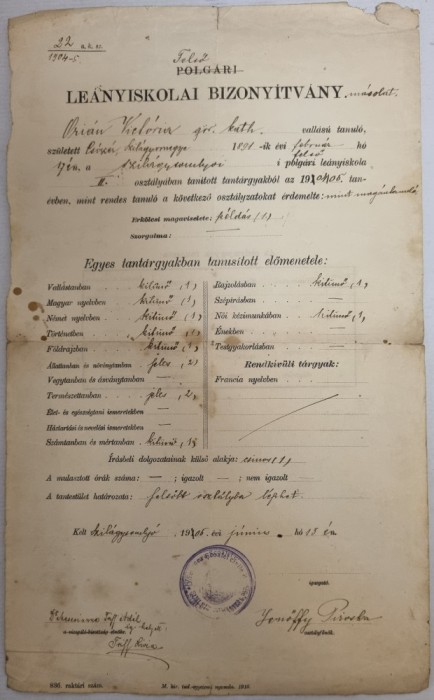 22 a. k. sz.
1904-5
Felső
POLGÁRI
LEÁNYISKOLAI BIZONYÍTVÁNY. másolat.
Orián Viktória gör. kath. vallású tanuló,
született Szilágymegye 1891-ik évi február hó
17 én, a szilágysomlyói felső i polgári leányiskola
II. osztályában tanított tantárgyakból az 1904/05. tan-
évben, mint rendes tanuló a következő osztályzatokat érdemelte: mint magántanuló
Erkölcsi magaviselete: példás (1)
Szorgalma: —
Egyes tantárgyakban tanusított előmenetele:
Vallástanban kitünő (1)
Magyar nyelvben kitünő (1)
Német nyelvben kitünő (1)
Történetben kitünő (1)
Földrajzban kitünő (1)
Állattan és növénytanban jeles (2)
Vegytanban és ásványtanban —
Természettanban jeles (2)
Élet- és egészségtani ismeretekben —
Háztartási és nevelési ismeretekben —
Számtanban és mértanban kitünő (1)
Rajzolásban kitünő (1)
Szépírásban —
Női kézimunkában kitünő (1)
Énekben —
Testgyakorlásban —
Rendkívüli tárgyak:
Francia nyelvben —
Írásbeli dolgozatainak külső alakja: csinos (1)
A mulasztott órák száma: — ; igazolt — ; nem igazolt —
A tantestület határozata: felsőbb osztályba léphet.
Kelt Szilágysomlyó 1905 évi június hó 15 én.
igazgató.
Jonóffy Piroska
osztályfőnök.
936. raktári szám.
M. kir. tud. egyetemi nyomda. 1910